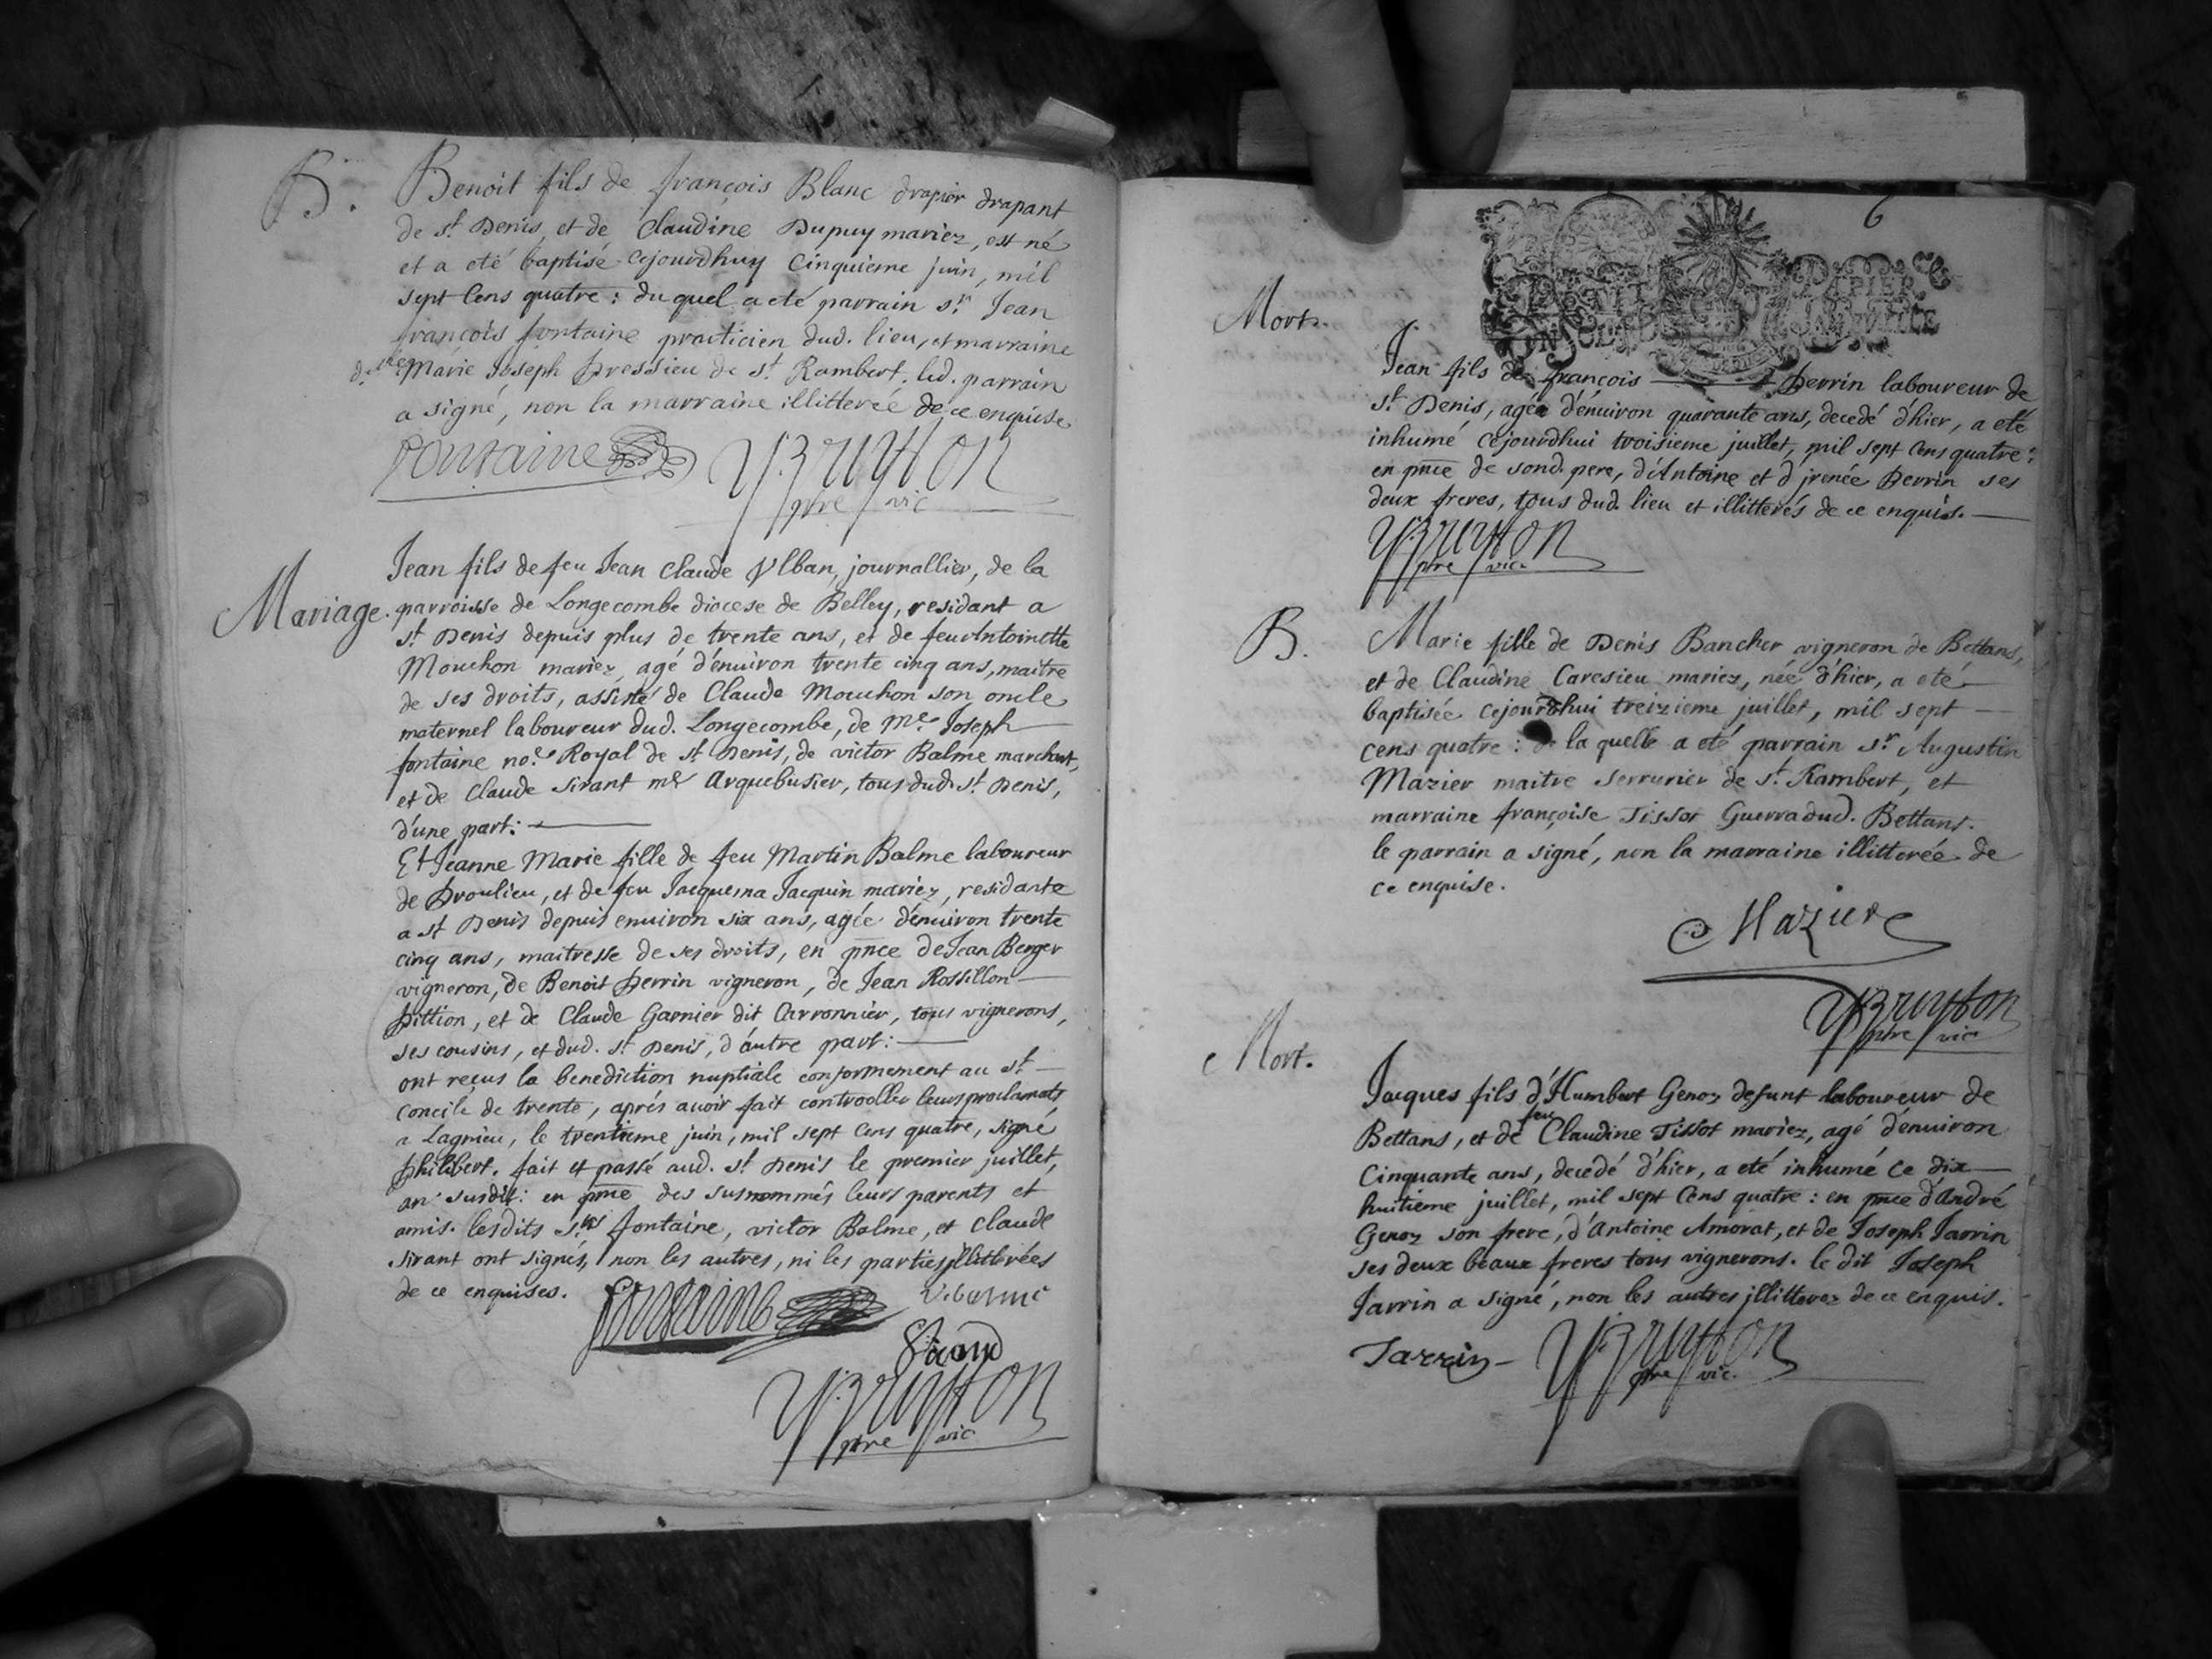 B. Benoit fils de françois Blanc drapier drapant
de st Denis, et de Claudine Dupuy mariez, est né
et a eté baptisé cejourdhuy cinquieme juin, mil
sept cens quatre : du quel a eté parrain sr. Jean
françois fontaine practicien dud. lieu, et marraine
d.lle Marie Joseph Pressieu de st Rambert. led. parrain
a signé, non la marraine illitterée de ce enquise
fontaine
Bruyson
pbre vic
Mariage. Jean fils de feu Jean Claude Ulban, journallier, de la
parroisse de Longecombe diocese de Belley, residant a
st Denis depuis plus de trente ans, et de feu Antoinette
Mouchon mariez, agé d'enuiron trente cinq ans, maitre
de ses droits, assisté de Claude Mouchon son oncle
maternel laboureur dud. Longecombe, de me Joseph
fontaine no.re Royal de st Denis, de victor Balme marchant,
et de Claude sirant me arquebusier, tous dud. st Denis,
d'une part :
Et Jeanne Marie fille de feu Martin Balme laboureur
de Proulieu, et de feu Jacquema Jacquin mariez, residante
a st Denis depuis enuiron six ans, agée d'enuiron trente
cinq ans, maitresse de ses droits, en pnce de Jean Berger
vigneron, de Benoit Perrin vigneron, de Jean Rossillon
Pittion, et de Claude Garnier dit Carronnier, tous vignerons,
ses cousins, et dud. st Denis, d'autre part :
ont reçus la benediction nuptiale conformement au st
concile de trente, aprés auoir fait controoller leurs proclamats
a Lagnieu, le trentieme juin, mil sept cens quatre, signé
Philibert. fait et passé aud. st Denis le premier juillet,
an susdit : en pnce des susnommés leurs parents et
amis. lesdits srs fontaine, victor Balme, et Claude
sirant ont signés, non les autres, ni les parties jllitterées
de ce enquises.
fontaine
V. balme
Sirand
Bruyson
pbre vic
6
PAPIER
Mort. Jean fils de françois Perrin laboureur de
st Denis, agée d'enuiron quarante ans, decedé d'hier, a eté
inhumé cejourdhui troisieme juillet, mil sept cens quatre :
en pnce de sond. pere, d'Antoine et d'jrenée Perrin ses
deux freres, tous dud. lieu et illitterés de ce enquis.
Bruyson
pbre vic.
B. Marie fille de Denis Bancher vigneron de Bettans,
et de Claudine Caresieu mariez, née d'hier, a eté
baptisée cejourdhui treizieme juillet, mil sept
cens quatre : de la quelle a eté parrain sr Augustin
Mazier maitre serrurier de st Rambert, et
marraine françoise Tissot Guerra dud. Bettans.
le parrain a signé, non la marraine illitterée de
ce enquise.
Mazier
Bruyson
pbre vic
Mort. Jacques fils d'Humbert Genoz defunt laboureur de
Bettans, et de feu Claudine Tissot mariez, agé d'enuiron
Cinquante ans, decédé d'hier, a eté inhumé ce dix
huitieme juillet, mil sept cens quatre : en pnce d'André
Genoz son frere, d'Antoine Amorat, et de Joseph Jarrin
ses deux beaux freres tous vignerons. le dit Joseph
Jarrin a signé, non les autres jllitterez de ce enquis.
Jarrin
Bruyson
pbre vic.